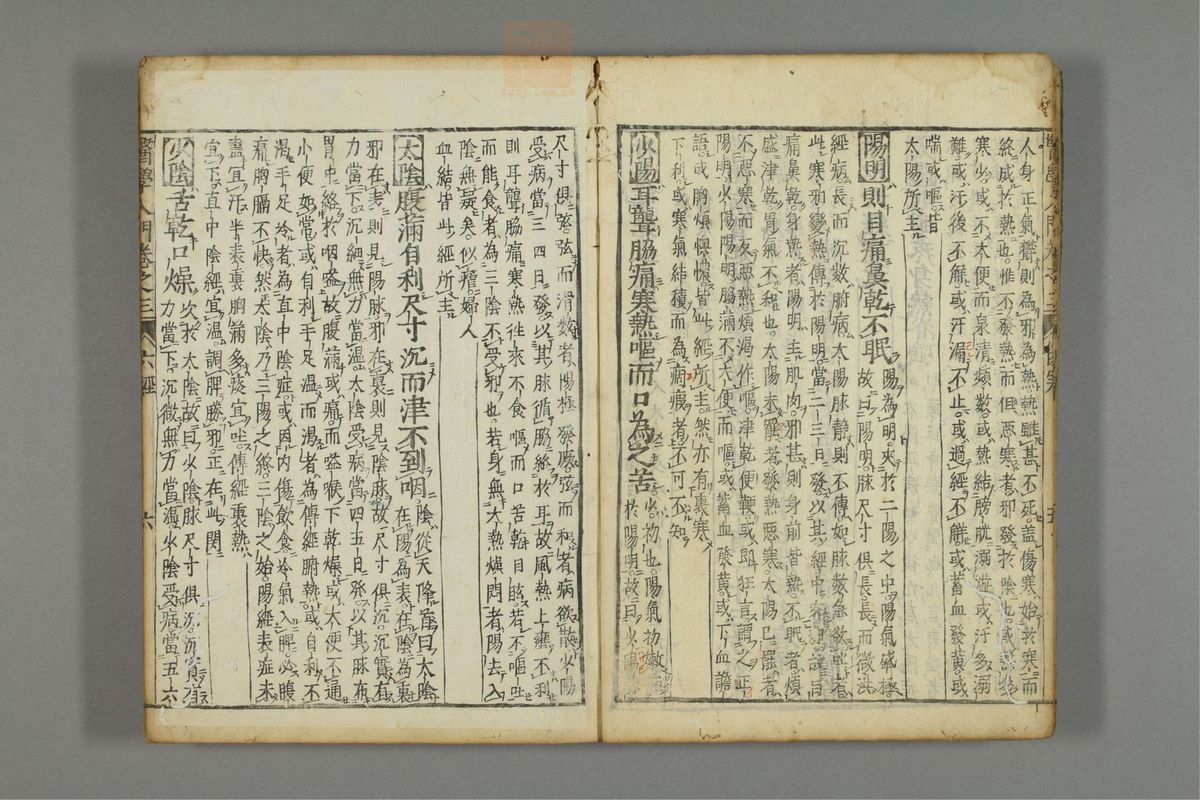 人身正氣欝則為邪為熱熱雖甚不死蓋傷寒始於寒而
終成於熱也惟不發熱而但惡寒者邪發於陰也或
寒少或不大便而泉清頻數或熱結膀胱溺澁或汗多溺
難或汗後不解或汗漏不止或過經不解或蓄血發黃或
喘或嘔皆
太陽所主
陽明則目痛鼻乾不眠
陽為明夾於二陽之中陽氣盛極
故曰陽明脉尺寸俱長長而微洪
經病長而沉數腑病太陽脉靜則不傳如脉數急欲吐者
此寒邪變熱傳於陽明當二三日發以其經中客目故目
痛鼻乾身熱者陽明主肌肉邪甚則身前皆熱不眠者煩
盛津乾胃氣不和也太陽未罷者發熱惡寒太陽已罷者
不惡寒而反惡熱煩渴作嘔津乾便鞕或即狂言謂之正
陽明少陽陽明脇滿不大便而嘔或蓄血發黃或下血譫
語或胸煩懊憹皆此經所主然亦有裏寒
下利或寒氣結積而為痼瘕者不可不知
少陽耳聾脇痛寒熱嘔而口為之苦
少初也陽氣初嫩
於陽明故曰少陽
尺寸俱弦弦而滑數者陽極發厥弦而和者病欲散少陽
受病當三四日發以其脉循脇絡於耳故風熱上壅不利
則耳聾脇痛寒熱往來不食嘔而口苦乾目眩若不嘔吐
而能食者為三陰不受邪也若身無大熱煩悶者陽去入
陰無疑矣似瘧婦人
血結皆此經所主
太陰腹滿自利尺寸沉而津不到咽
陰從天降首曰太陰
在陽為表在陰為裏
邪在表則見陽脉邪在裏則見陰脉故尺寸俱沉沉實有
力當下沉細無力當溫太陰受病當四五日發以其脉布
胃中終於咽嗌故腹滿或痛而嗌喉下乾燥或大便不通
小便如常或自利手足溫而渴者為傳經腑熱或自利不
渴手足冷者為直中陰症或因內傷飲食冷氣入脾必腹
痛胸膈不快然太陰乃三陽之終三陰之始陽經表症未
盡宜汗半表裏胸滿多痰宜吐傳經裏熱
宜下直中陰經宜溫調脾勝邪正在此關
少陰舌乾口燥
次於太陰故曰少陰脉尺寸俱沉沉實有
力當下沉微無力當溫少陰受病當五六
醫學入門卷之三 六經 六